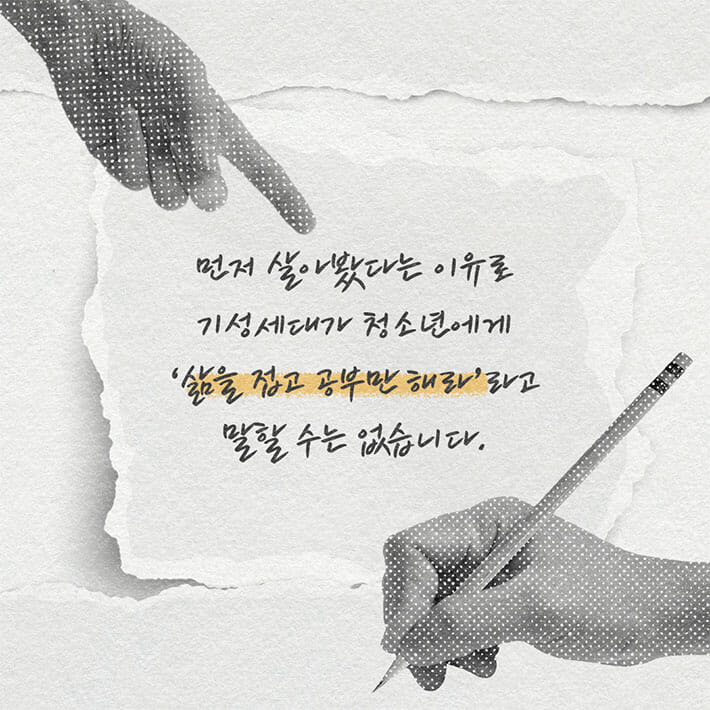 먼저 살아봤다는 이유로
기성세대가 청소년에게
‘삶을 접고 공부만 해라’라고
말할 수는 없습니다.